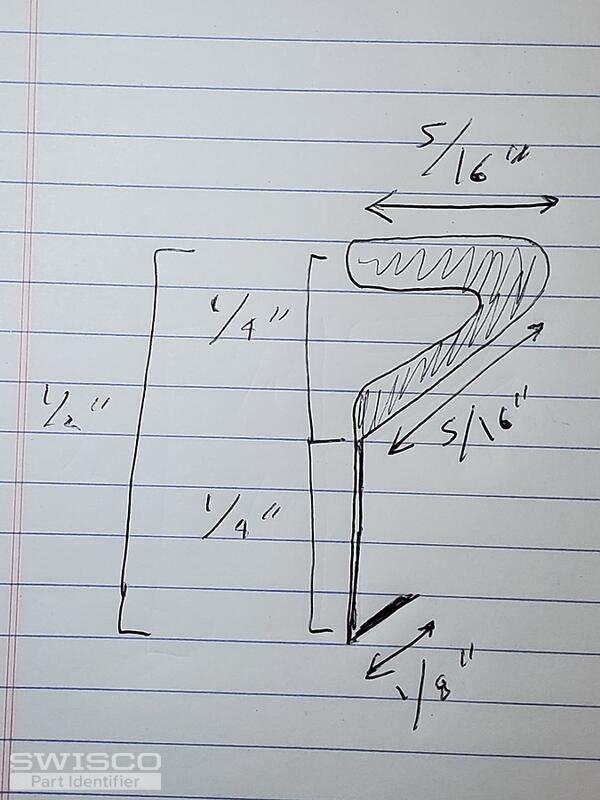 5/16"
1/4"
1/2"
5/16"
1/4"
1/8"
SWISCO
Part Identifier